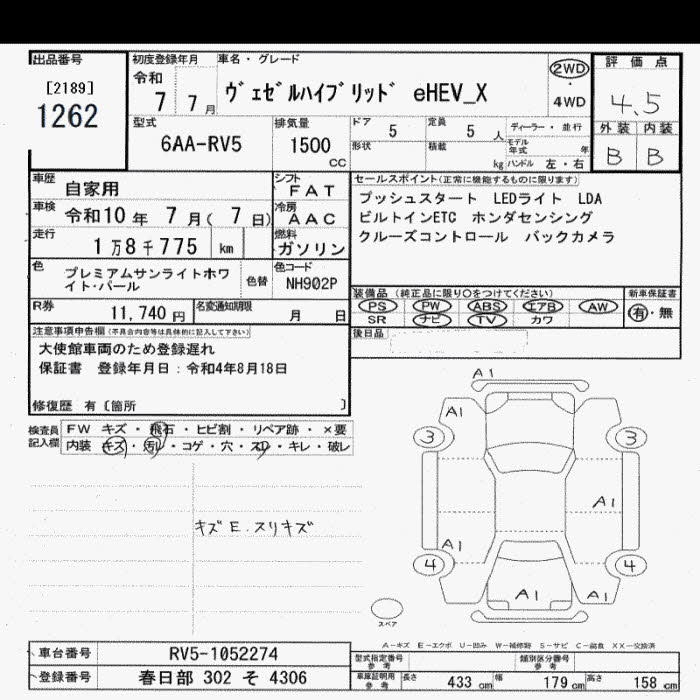 出品番号
[2189]
1262
初度登録年月
令和
7 7月
車名・グレード
ヴェゼルハイブリッド eHEV_X
2WD
・
4WD
評価点
4.5
外装 内装
B B
型式
6AA-RV5
排気量
1500
CC
ドア
5
定員
5 人
ディーラー・並行
形状
積載
kg
モデル
年式
年
ハンドル 左・右
車歴
自家用
シフト
FAT
車検
令和10年 7月( 7日)
冷房
AAC
走行
1万8千775 km
燃料
ガソリン
セールスポイント(正常に機能するものに限ります)
プッシュスタート LEDライト LDA
ビルトインETC ホンダセンシング
クルーズコントロール バックカメラ
色
プレミアムサンライトホワ
イト・パール
色替
色コード
NH902P
R券
11,740 円
名変通知期限
月 日
装備品 (純正品に限り○をつけてください)
PS PW ABS エアB AW
SR ナビ TV カワ
新車保証書
有・無
後日品
注意事項申告欄(不具合内容等は具体的に記入して下さい)
大使館車両のため登録遅れ
保証書 登録年月日:令和4年8月18日
修復歴 有〔箇所 〕
検査員
記入欄
FW キズ・飛石・ヒビ割・リペア跡・×要
内装 キズ・汚レ・コゲ・穴・スレ・キレ・破レ
キズE.スリキズ
A1
A1
3 3
A1
A1
4 4
A1 A1
スペア
A−キズ E−エクボ U−凹み W−補修跡 S−サビ C−腐食 XX−交換済
車台番号
RV5-1052274
登録番号
春日部 302 そ 4306
型式指定番号
参考
類別区分番号
参考
車庫証明用
参考
長さ 433 cm 幅 179 cm 高さ 158 cm